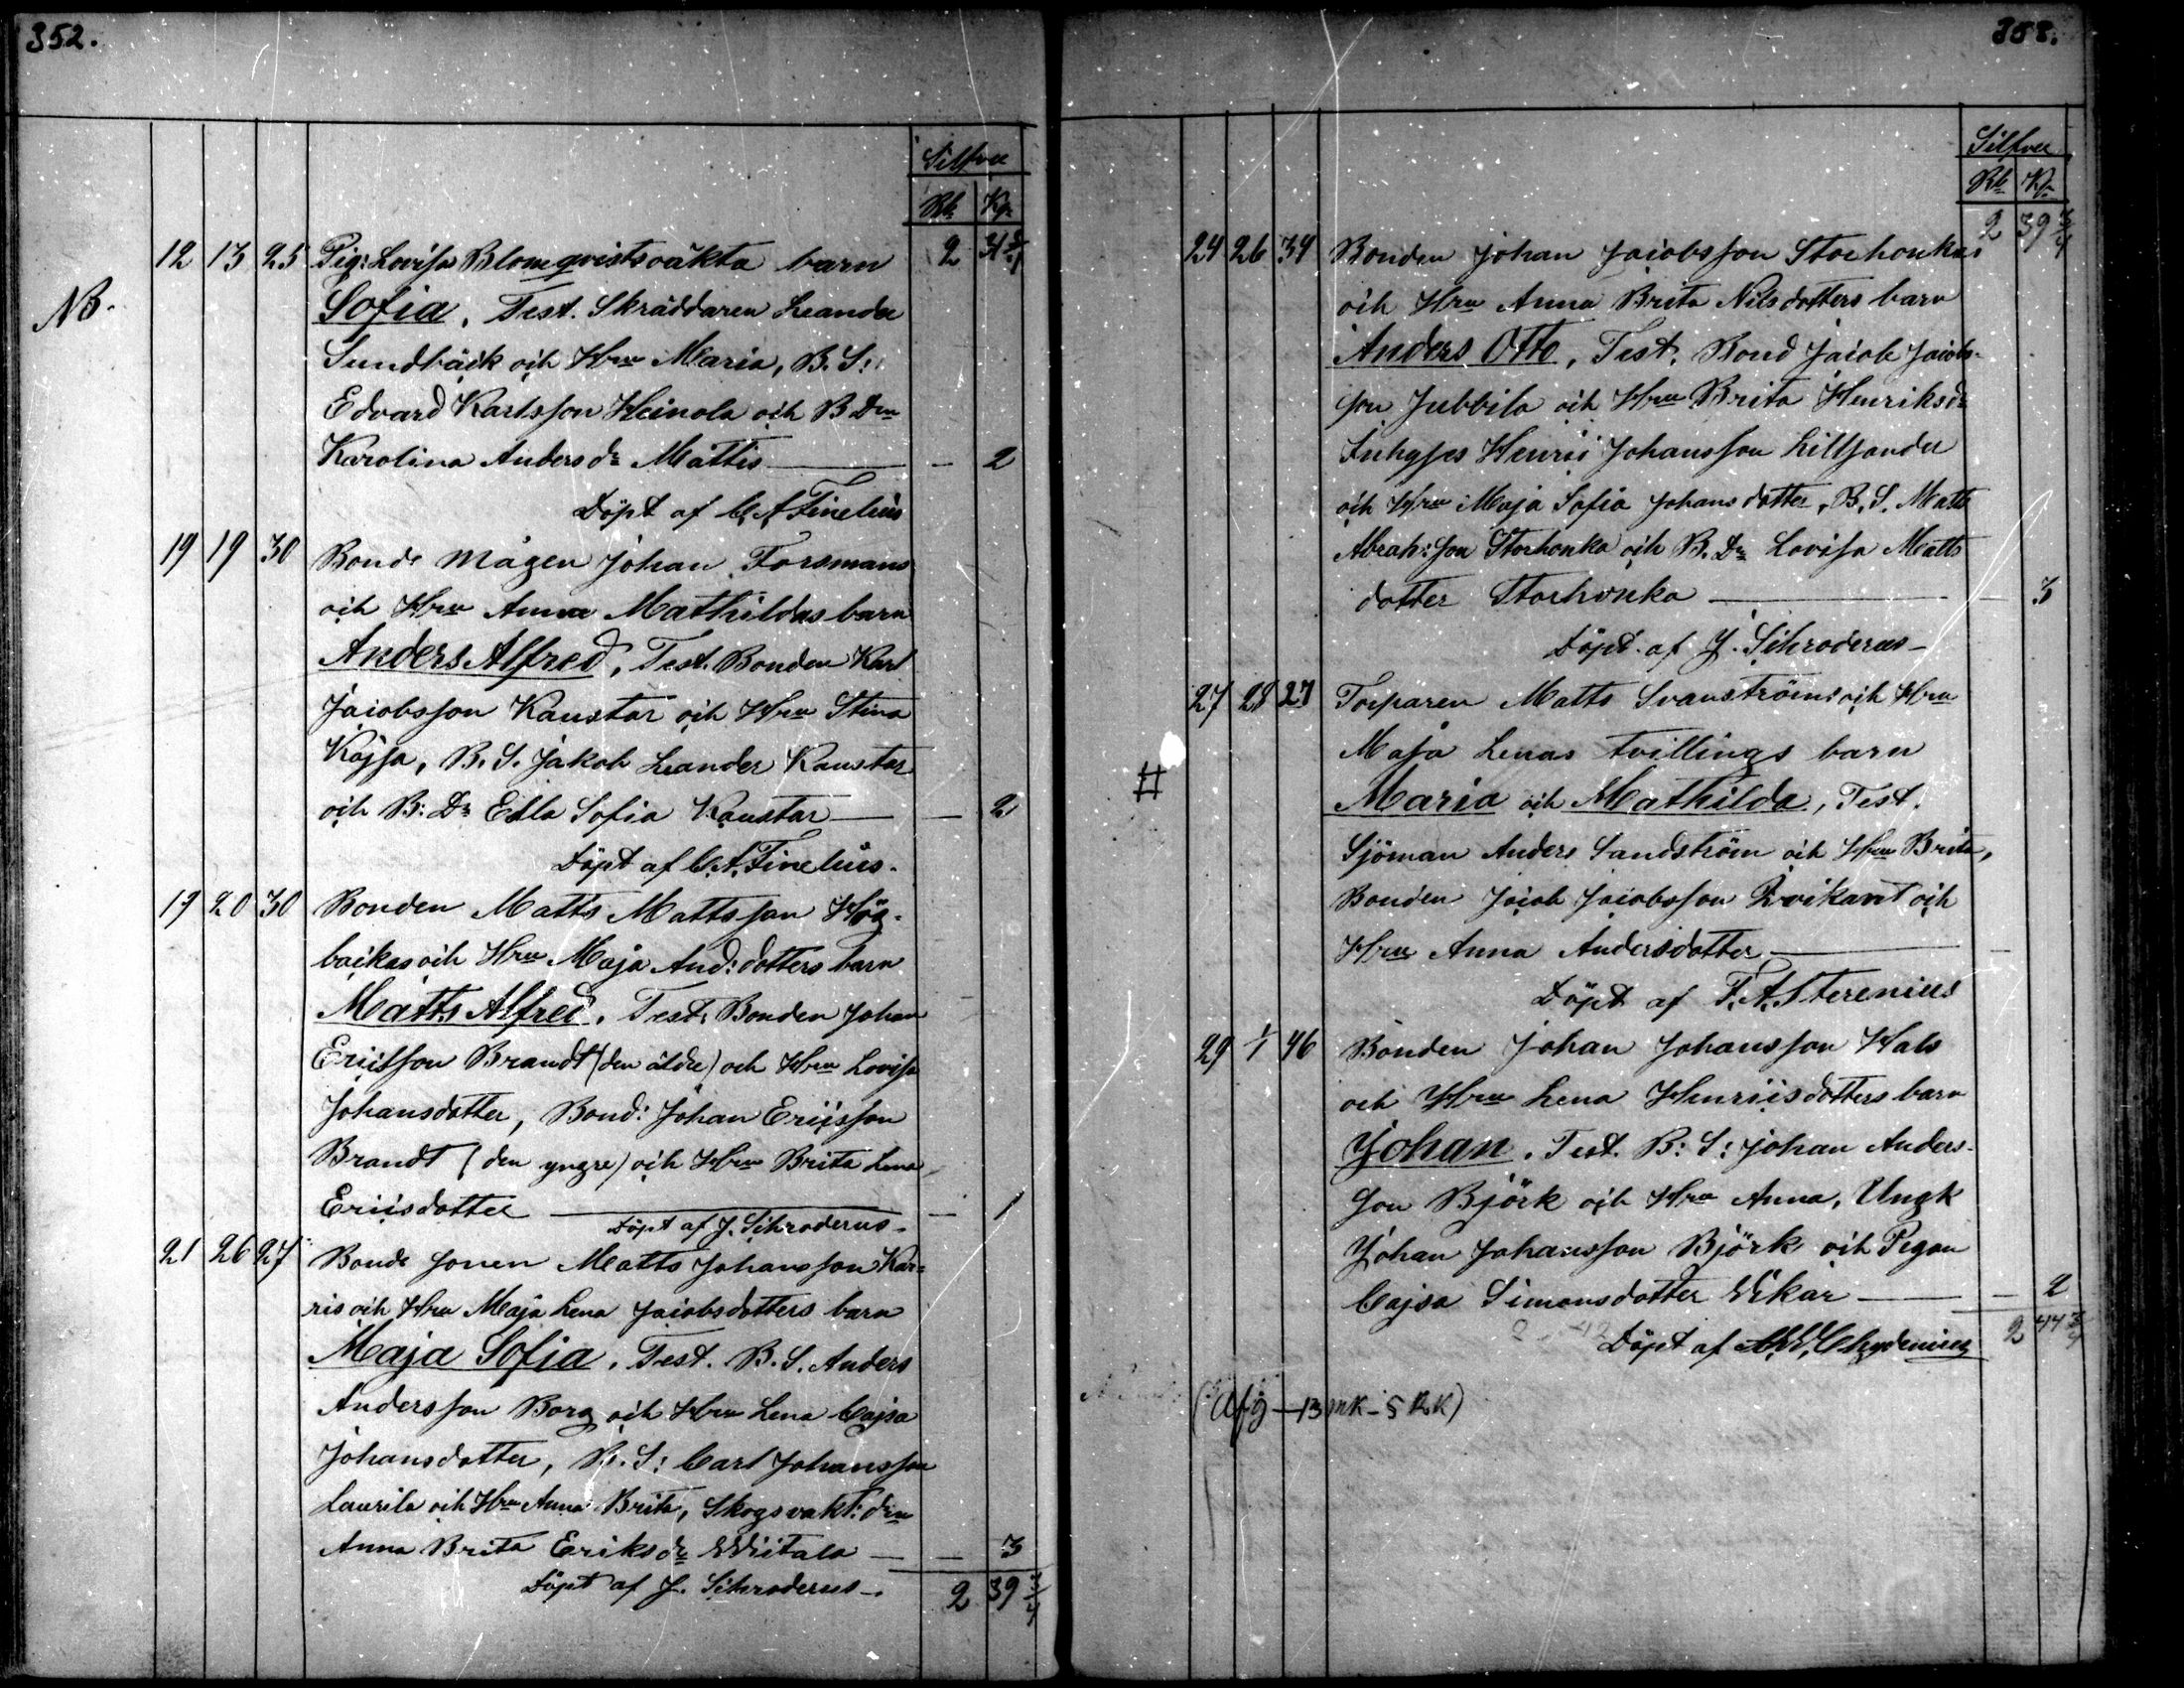 352.
Silfver
Rb Kp
2 31 3/4
12 13 25 Pig: Lovisa Blomqvists oäkta barn
NB.
Sofia, Test. Skräddaren Leander
Sundbäck och Hru Maria, B. S:
Edvard Karlsson Heinola och B Drn
Karolina Andersdr Mattis — — 2
Döpt af C. A. Finelius
19 19 30 Bonde mågen Johan Forsmans
och Hru Anna Mathildas barn
Anders Alfred, Test. Bonden Karl
Jacobsson Kaustar och Hru Stina
Kajsa, B. S. Jakob Leander Kaustar
och B: Dr Edla Sofia Kaustar — — 2
Döpt af C. A. Finelius.
19 20 30 Bonden Matts Mattsson Hög-
backas och Hru Maja And: dotters barn
Matts Alfred. Test. Bonden Johan
Ericsson Brandt (den äldre) och Hru Lovisa
Johansdotter, Bond: Johan Ericsson
Brandt (den yngre) och Hru Brita Lena
Ericsdotter — — 1
Döpt af J. Schroderus.
21 26 27 Bonde sonen Matts Johansson Kar-
ris och Hru Maja Lena Jacobsdotters barn
Maja Sofia. Test. B. S. Anders
Andersson Borg och Hru Lena Cajsa
Johansdotter, B. S: Carl Johansson
Laurila och Hru Anna Brita, Skogsvakt: drn
Anna Brita Eriksdr Wiitala — — 3
Döpt af J. Schroderus. 2 39 3/4
353.
Silfver
Rb Kp
2 39 3/4
24 26 34 Bonden Johan Jacobsson Storhonkas
och Hru Anna Brita Nilsdotters barn
Anders Otto, Test. Bond Jacob Jacobs-
son Jubbila och Hru Brita Henriksdr
Inhyses Henric Johansson Lillsander
och Hru Maja Sofia Johansdotter, B. S. Matts
Abrah: son Storhonka och B. Dr Lovisa Matts
dotter Storhonka — — 3
Döpt af J. Schroderus
27 28 27 Torparen Matts Svanströms och Hru
Maja Lenas tvillings barn
# Maria och Mathilda, Test.
Sjöman Anders Sandström och Hru Brita,
Bonden Jacob Jacobsson Qvikant och
Hru Anna Andersdotter — —
Döpt af F. A. Sterenius
29 1/1 46 Bonden Johan Johansson Hals
och Hru Lena Henricsdotters barn
Johan. Test. B: S: Johan Anders-
son Björk och Hru Anna, Ungk
Johan Johansson Björk och Pigan
Cajsa Simonsdotter Wikar — — 2
Döpt af Chydenius 2 44 3/4
(Afg — 13 mk – 5 RK)